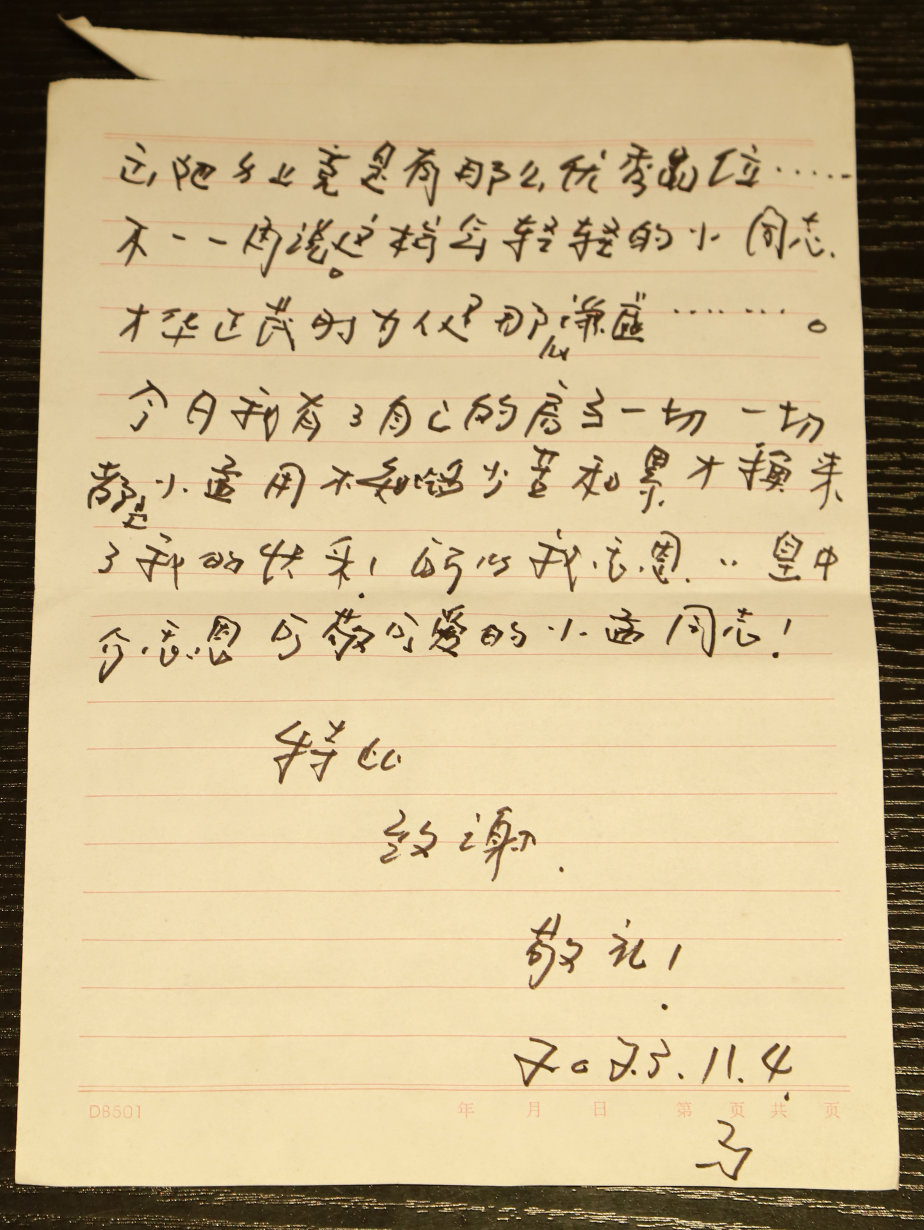 竟是有那么优秀出位……
不一一周说这样年轻轻的小同志.
才华正茂时为人处 那么谦……。
今日我有了自己的 一切 一切
都是小孟用不知多少苦和累才换来
了我的快乐! 所以我感恩..
感恩可敬可爱的小孟同志!
特此
致谢.
敬礼!
2023.11.4.
DB501 年 月 日 第 页 共 页